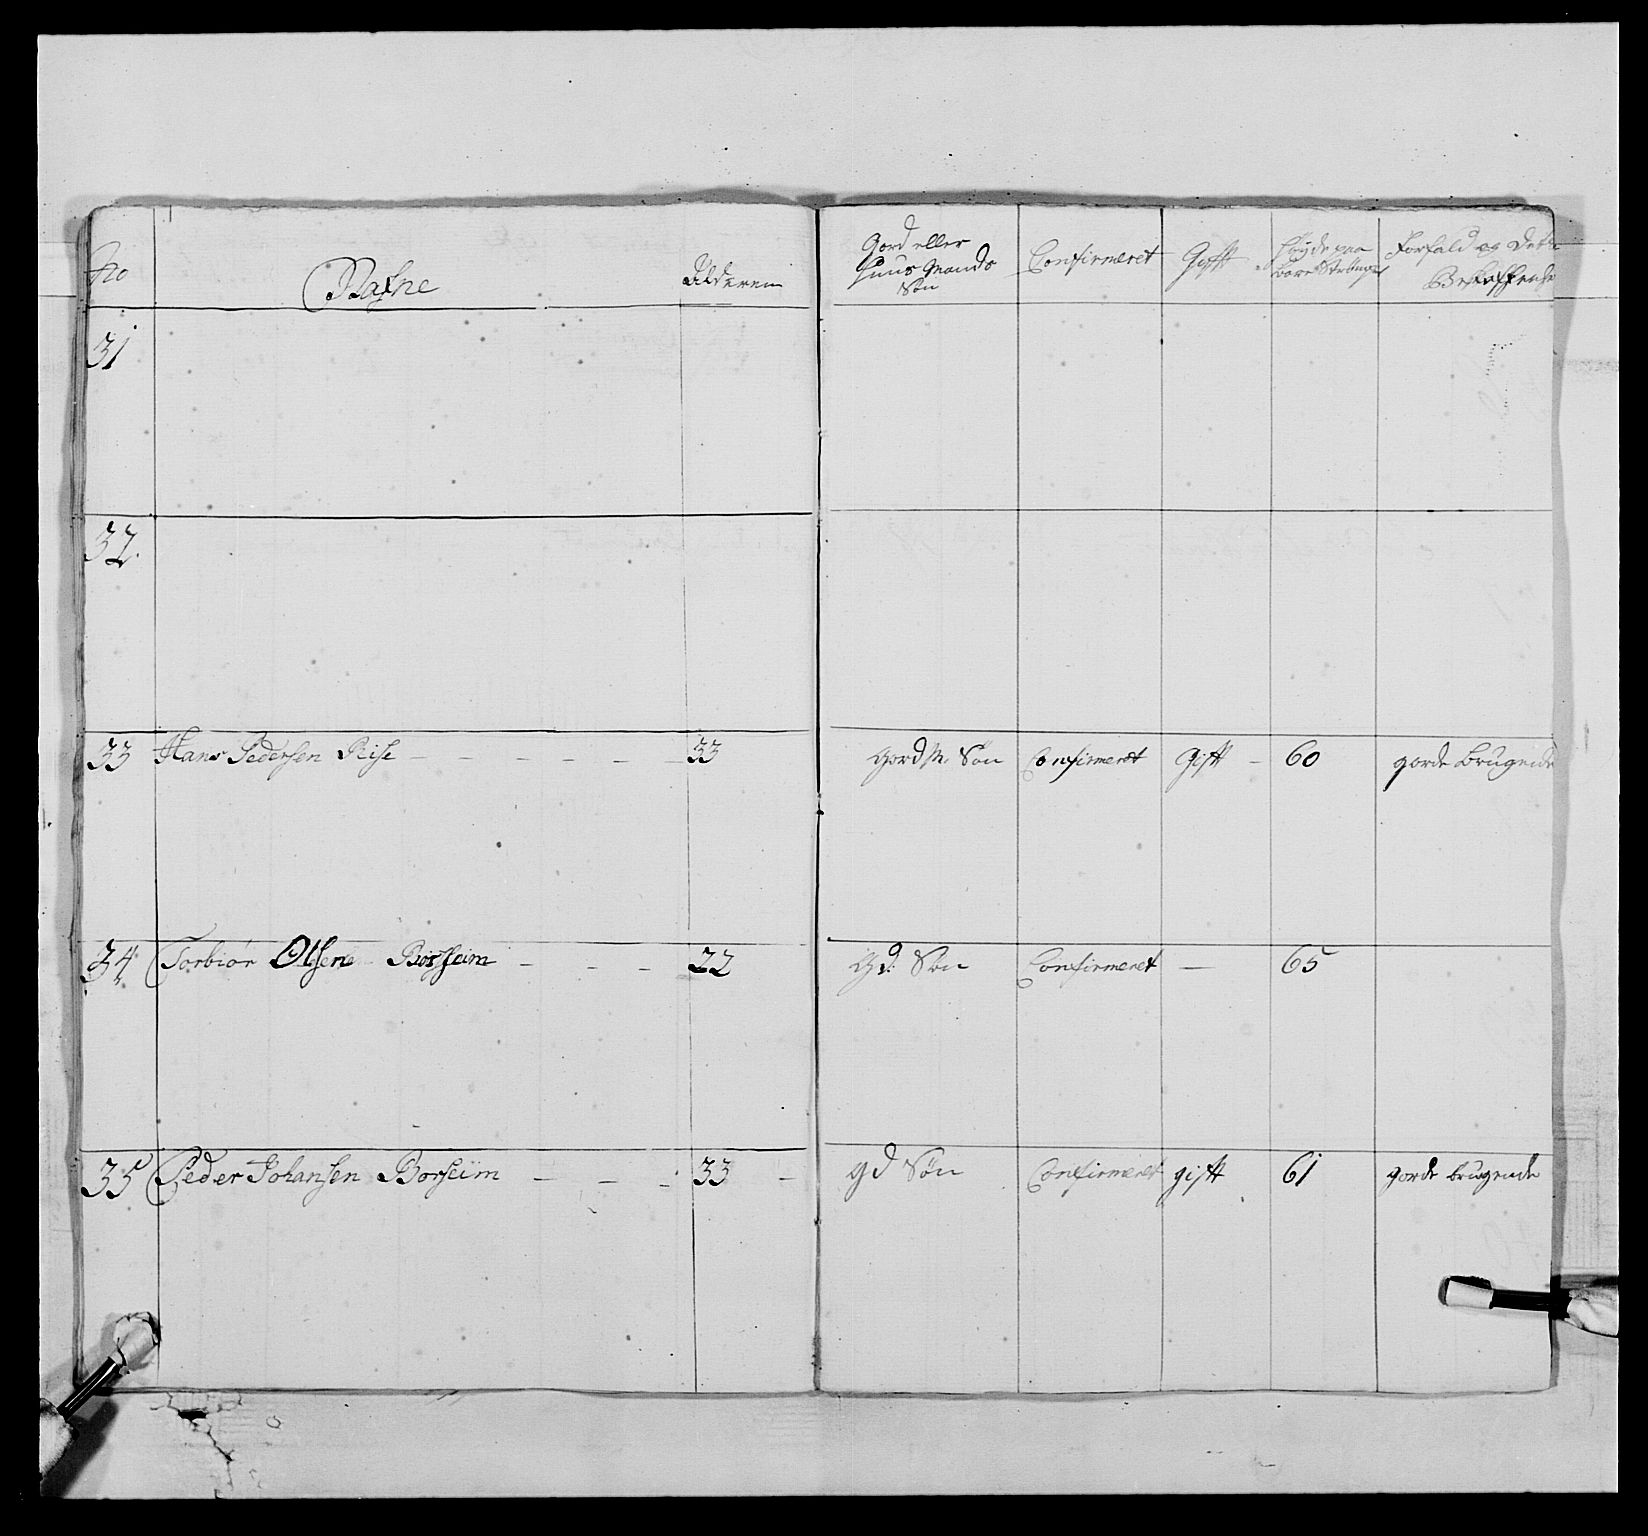 No Nafne Alderen Gord eller Huus Mands Søn Confirmeret Gift Høyde paa bare Strømper Forfald og Dets Beskaffenhe
31
32.
33 Hans Pedersen Riise - - - - - - 33 gord M. Søn Confirmeret Gift - 60 gorde brugende
34 Torbiør Olsen Borsheim - - - 22 gd: Søn Confirmeret - 65
35 Peder Johansen Borsheim - - - 33 - gd Søn Confirmeret gift 61 gorde brugende